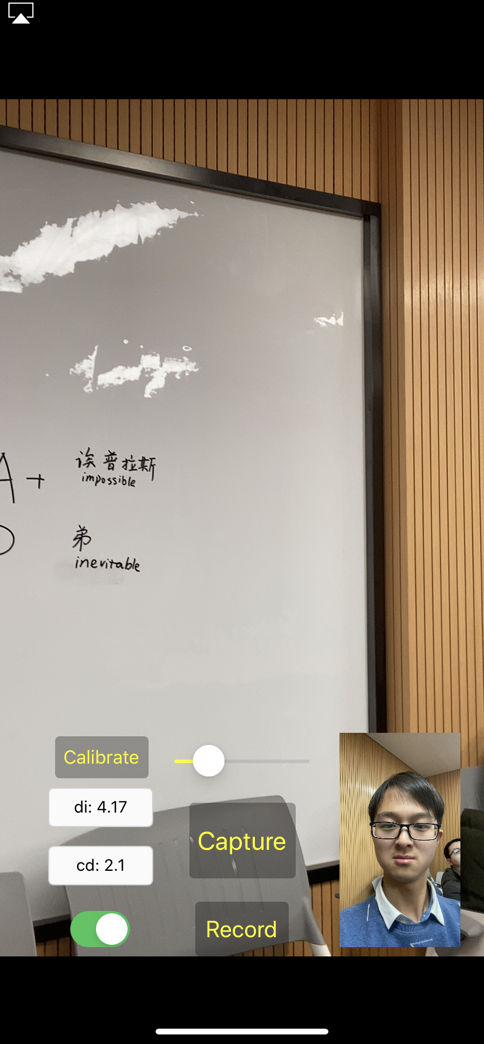 A + 诶普拉斯
impossible
弟
inevitable
Calibrate
di: 4.17
cd: 2.1
Capture
Record